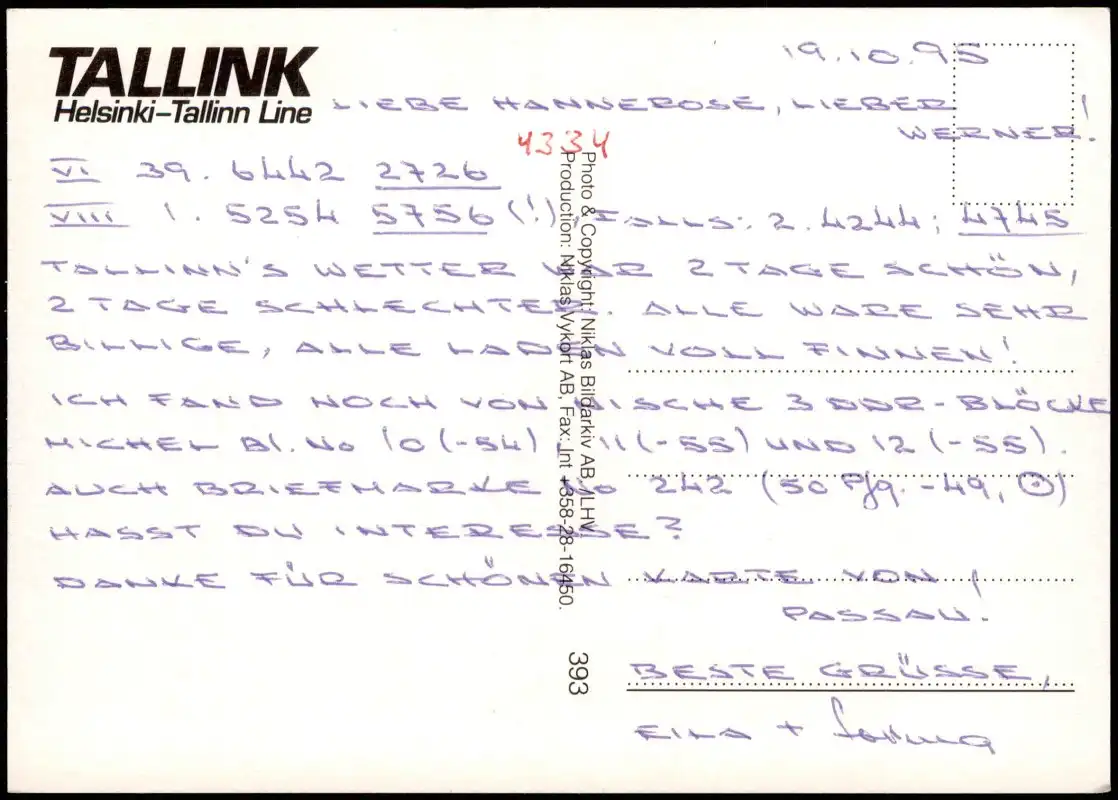 TALLINK
Helsinki–Tallinn Line
19.10.95
LIEBE HANNEROSE, LIEBER
WERNER!
4334
VI 39. 6442 2726
VIII 1. 5254 5756 (!), FALLS: 2. 4244; 4745
TALLINN'S WETTER WAR 2 TAGE SCHÖN,
2 TAGE SCHLECHTER. ALLE WARE SEHR
BILLIGE, ALLE LADEN VOLL FINNEN!
ICH FAND NOCH VON MISCHE 3 DDR-BLÖCKE
MICHEL Bl. No 10 (-54), 11 (-55) UND 12 (-55).
AUCH BRIEFMARKE No 242 (50 Pfg. -49, ⊙)
HASST DU INTERESSE?
DANKE FÜR SCHÖNEN KARTE VON
PASSAU!
BESTE GRÜSSE,
EILA +
Photo & Copyright: Niklas Bildarkiv AB/ILHV
Production: Niklas Vykort AB, Fax: Int +358-28-16450.
393